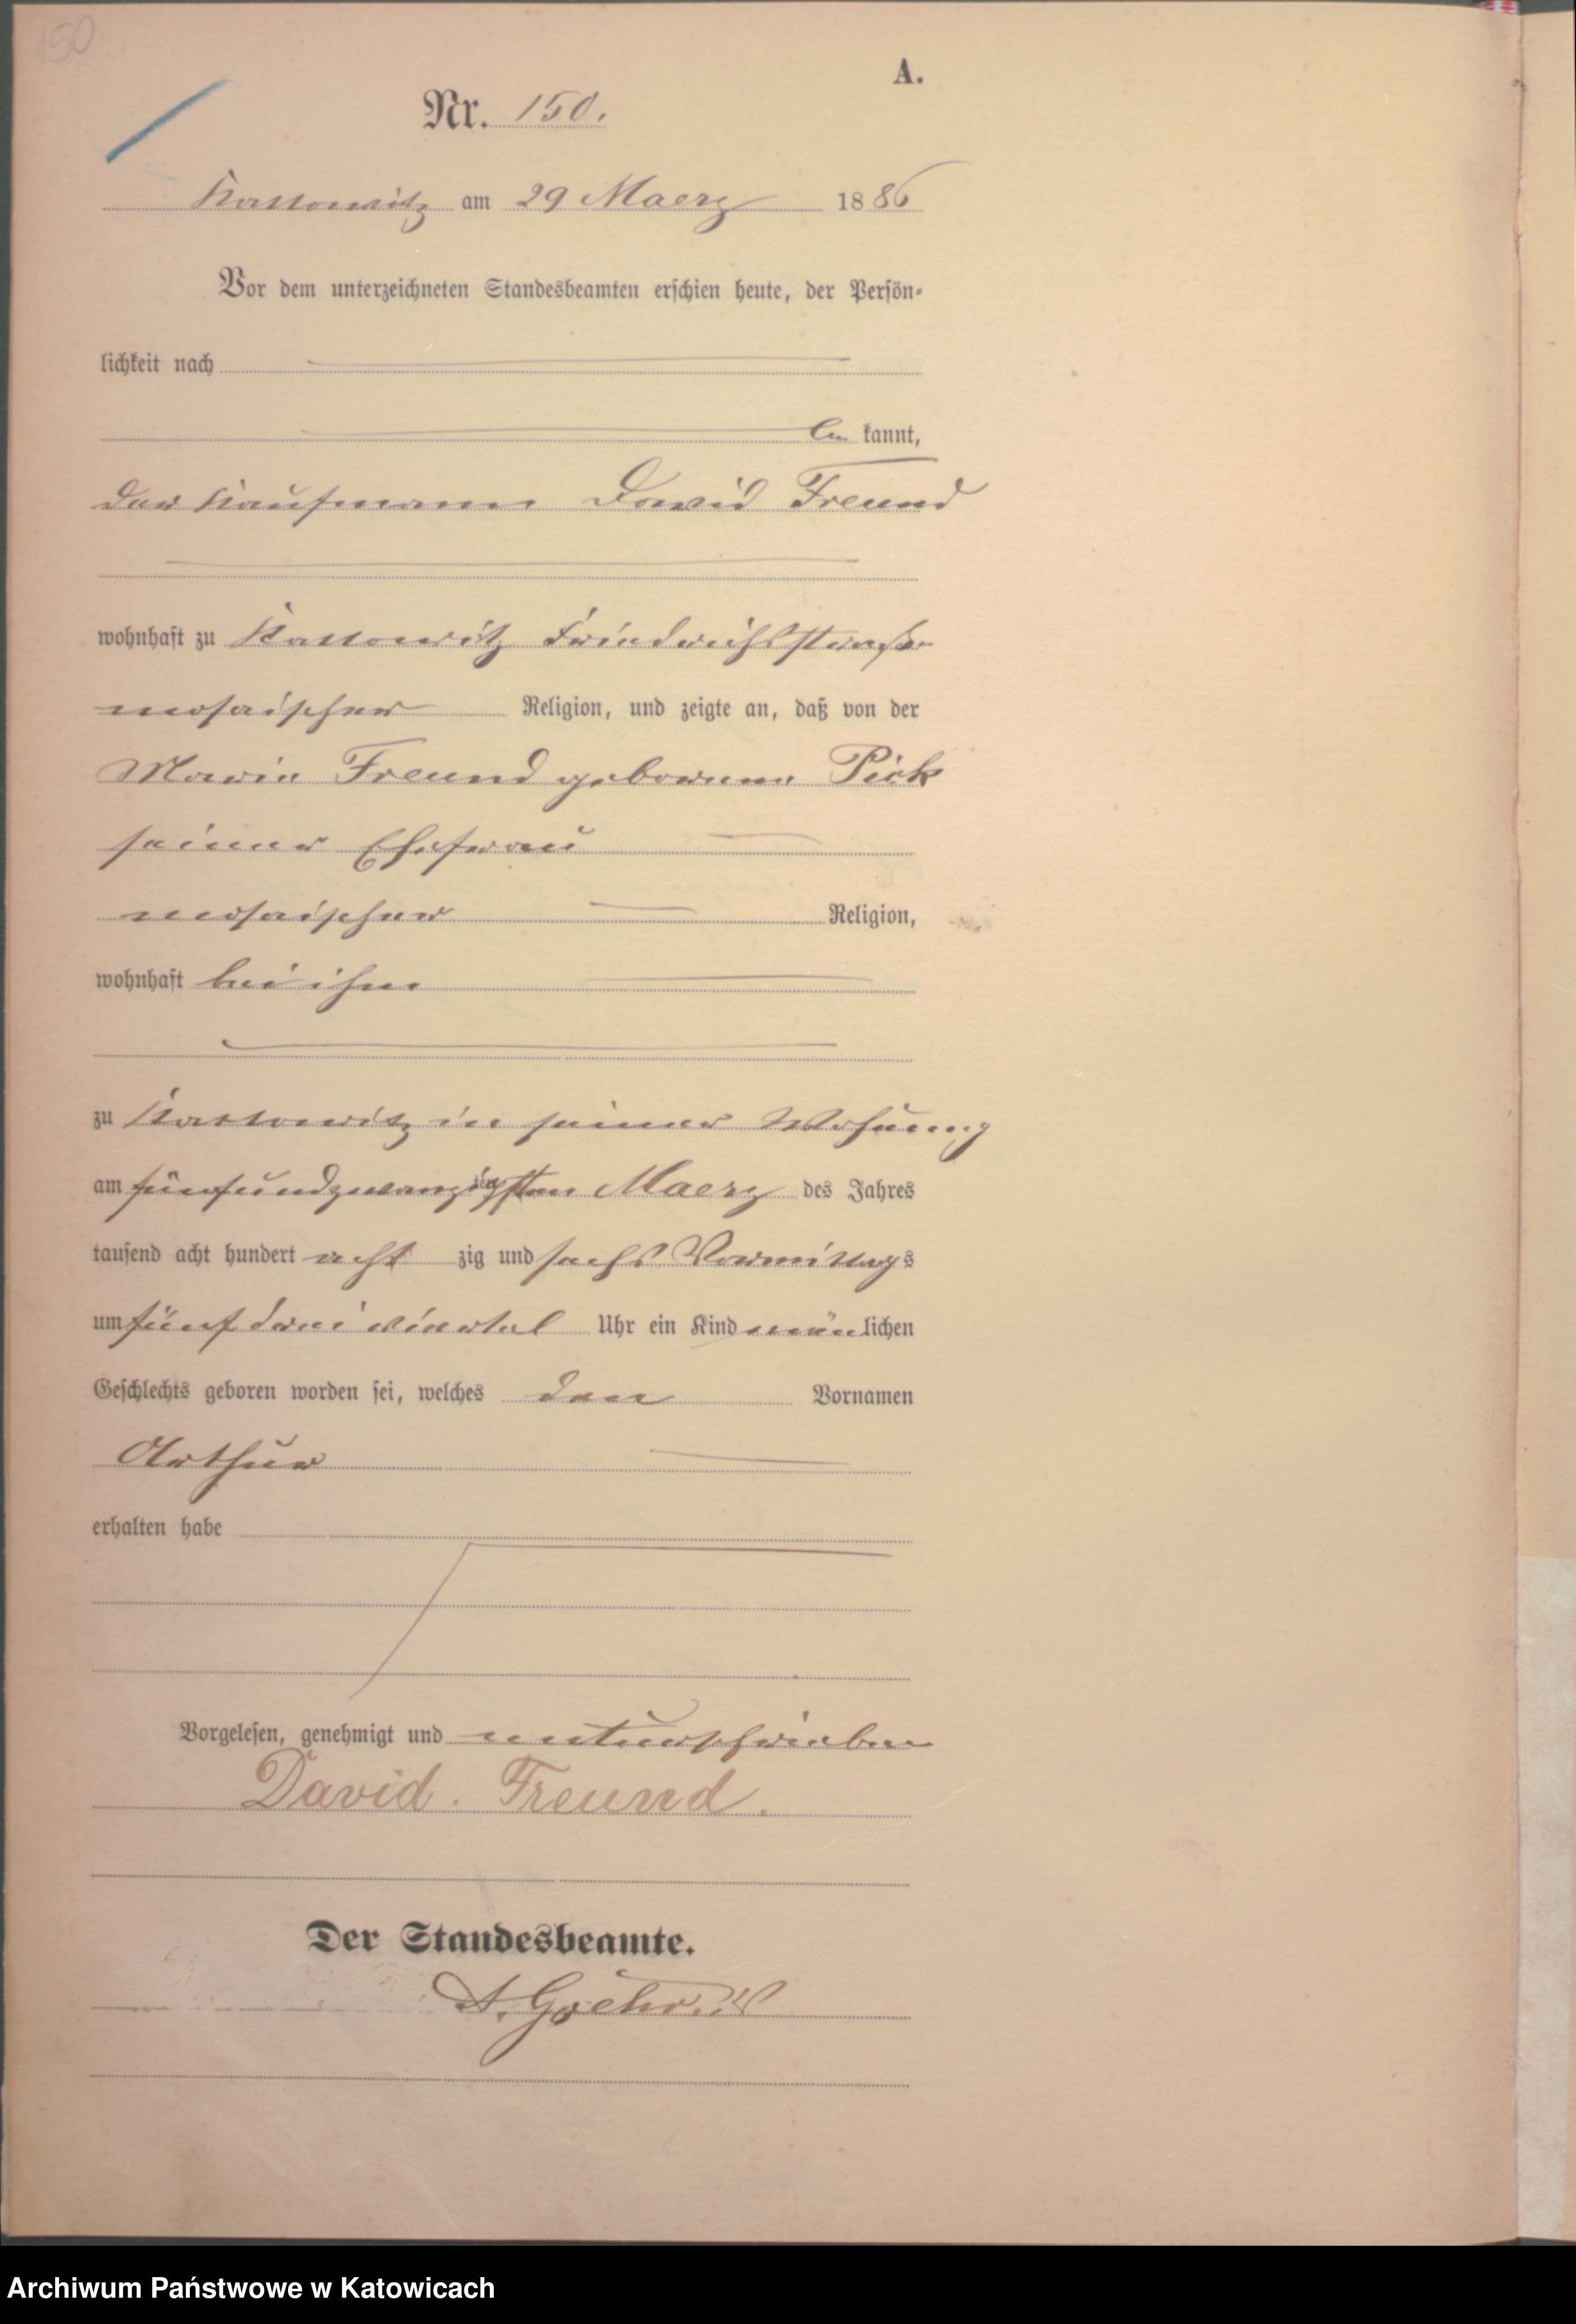 150
A.
Nr. 150.
Kattowitz am 29 Maerz 1886
Vor dem unterzeichneten Standesbeamten erschien heute, der Persön-
lichkeit nach
be kannt,
der Kaufmann David Freund
wohnhaft zu Kattowitz Friedrichsstraße
mosaischer Religion, und zeigte an, daß von der
Marie Freund geborene Pick
seiner Ehefrau
mosaischer Religion,
wohnhaft bei ihm
zu Kattowitz in seiner Wohnung
am fünfundzwanzigsten Maerz des Jahres
tausend acht hundert acht zig und sechs Vormittags
um fünf drei viertel Uhr ein Kind männlichen
Geschlechts geboren worden sei, welches den Vornamen
Arthur
erhalten habe
Vorgelesen, genehmigt und unterschrieben
David. Freund.
Der Standesbeamte.
Archiwum Państwowe w Katowicach